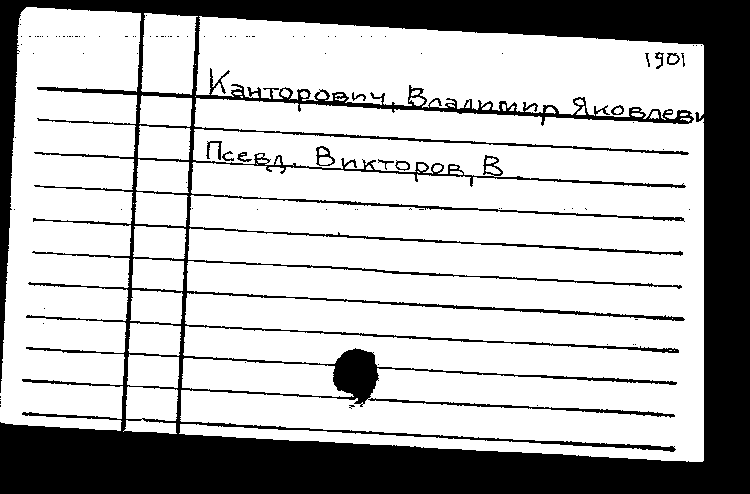 1901
Канторович, Владимир Яковлеви
Псевд. Викторов, В.